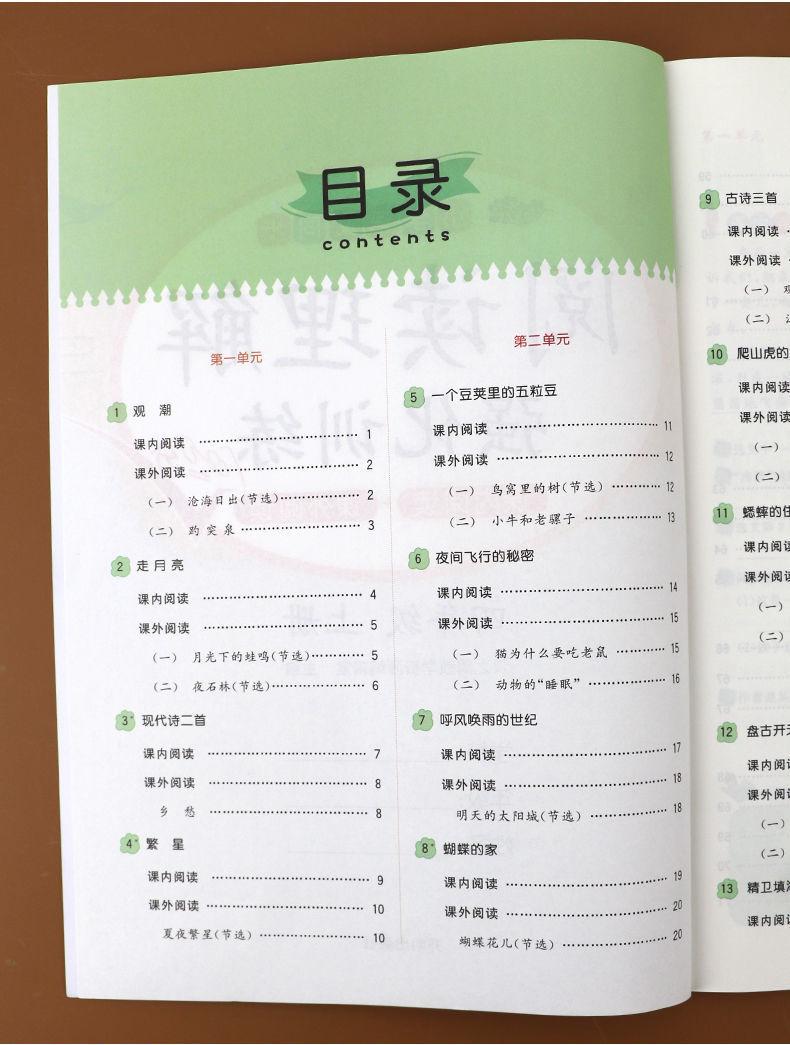 目录
contents
第一单元
1 观 潮
课内阅读 …… 1
课外阅读 …… 2
（一） 沧海日出(节选)…… 2
（二） 趵突泉 …… 3
2 走月亮
课内阅读 …… 4
课外阅读 …… 5
（一） 月光下的蛙鸣(节选)…… 5
（二） 夜石林(节选)…… 6
3* 现代诗二首
课内阅读 …… 7
课外阅读 …… 8
乡 愁 …… 8
4* 繁 星
课内阅读 …… 9
课外阅读 …… 10
夏夜繁星(节选) …… 10
第二单元
5 一个豆荚里的五粒豆
课内阅读 …… 11
课外阅读 …… 12
（一） 鸟窝里的树(节选) …… 12
（二） 小牛和老骡子 …… 13
6 夜间飞行的秘密
课内阅读 …… 14
课外阅读 …… 15
（一） 猫为什么要吃老鼠 …… 15
（二） 动物的“睡眠” …… 16
7 呼风唤雨的世纪
课内阅读 …… 17
课外阅读 …… 18
明天的太阳城(节选) …… 18
8* 蝴蝶的家
课内阅读 …… 19
课外阅读 …… 20
蝴蝶花儿(节选) …… 20
9 古诗三首
课内阅读
课外阅读
（一）
（二）
10 爬山虎的
课内阅读
课外阅读
（一）
（二）
11 蟋蟀的住
课内阅读
课外阅读
（一）
（二）
12 盘古开天
课内阅读
课外阅读
（一）
（二）
13 精卫填海
课内阅读